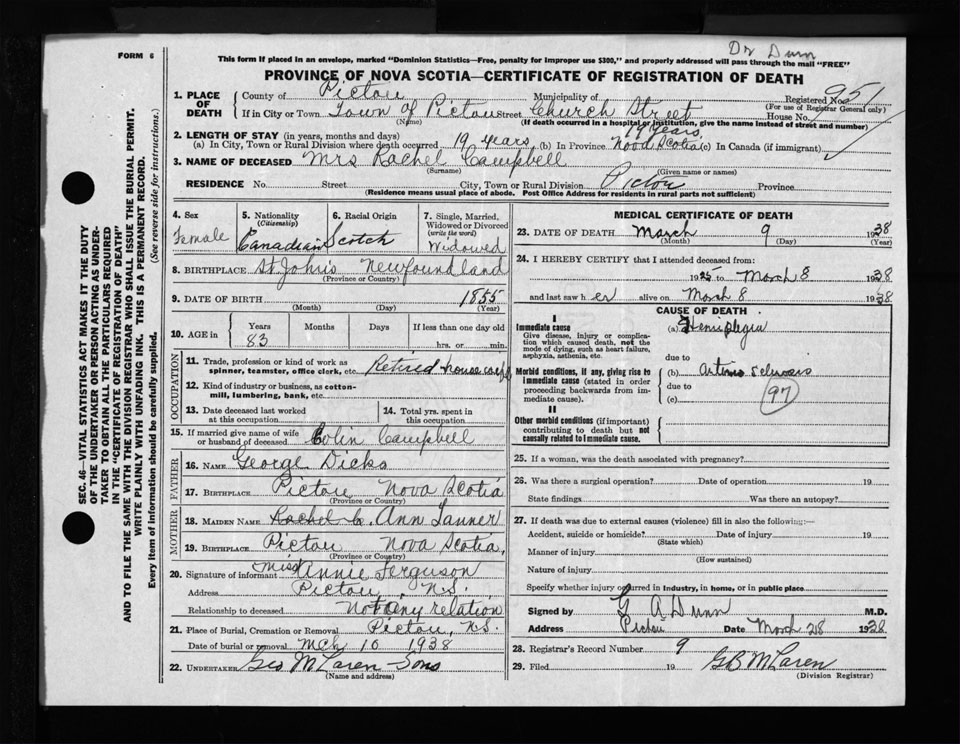 Dr Dunn
FORM 6
This form if placed in an envelope, marked "Dominion Statistics—Free, penalty for improper use $300," and properly addressed will pass through the mail "FREE"
PROVINCE OF NOVA SCOTIA—CERTIFICATE OF REGISTRATION OF DEATH
1. PLACE OF DEATH
County of Pictou Municipality of Registered No. 951
(For use of Registrar General only)
If in City or Town Town of Pictou Street Church Street House No.
(Name) (If death occurred in a hospital or institution, give the name instead of street and number)
2. LENGTH OF STAY (in years, months and days)
(a) In City, Town or Rural Division where death occurred 19 years (b) In Province 79 years, Nova Scotia (c) In Canada (if immigrant)
3. NAME OF DECEASED Mrs Rachel Campbell
(Surname) (Given name or names)
RESIDENCE No. Street City, Town or Rural Division Pictou Province
(Residence means usual place of abode. Post Office Address for residents in rural parts not sufficient)
4. Sex Female
5. Nationality (Citizenship) Canadian
6. Racial Origin Scotch
7. Single, Married, Widowed or Divorced (write the word) Widowed
8. BIRTHPLACE St John's Newfoundland
(Province or Country)
9. DATE OF BIRTH 1855
(Month) (Day) (Year)
10. AGE in Years Months Days If less than one day old
83 hrs. or min.
OCCUPATION
11. Trade, profession or kind of work as spinner, teamster, office clerk, etc. Retired
12. Kind of industry or business, as cotton-mill, lumbering, bank, etc.
13. Date deceased last worked at this occupation
14. Total yrs. spent in this occupation
15. If married give name of wife or husband of deceased Colin Campbell
FATHER
16. NAME George Dicks
17. BIRTHPLACE Pictou Nova Scotia
(Province or Country)
MOTHER
18. MAIDEN NAME Rachel C. Ann Tanner
19. BIRTHPLACE Pictou Nova Scotia,
(Province or Country)
20. Signature of informant Miss Annie Ferguson
Address Pictou, N.S.
Relationship to deceased Not any relation
21. Place of Burial, Cremation or Removal Pictou, N.S.
Date of burial or removal Mch 10 1938
22. UNDERTAKER Geo McLaren Sons
(Name and address)
MEDICAL CERTIFICATE OF DEATH
23. DATE OF DEATH March 9 1938
(Month) (Day) (Year)
24. I HEREBY CERTIFY that I attended deceased from:
1925 to March 8 1938
and last saw her alive on March 8 1938
CAUSE OF DEATH
I
Immediate cause
Give disease, injury or complication which caused death, not the mode of dying, such as heart failure, asphyxia, asthenia, etc.
(a) Hemiplegia
due to
Morbid conditions, if any, giving rise to immediate cause (stated in order proceeding backwards from immediate cause).
(b) Arterio Sclerosis
due to
(c)
97
II
Other morbid conditions (if important) contributing to death but not causally related to immediate cause.
25. If a woman, was the death associated with pregnancy?
26. Was there a surgical operation? Date of operation 19
State findings Was there an autopsy?
27. If death was due to external causes (violence) fill in also the following:—
Accident, suicide or homicide? Date of injury 19
(State which)
Manner of injury
(How sustained)
Nature of injury
Specify whether injury occurred in industry, in home, or in public place
Signed by G A Dunn M.D.
Address Pictou Date March 28 1938
28. Registrar's Record Number 9
29. Filed 19 G B McLaren
(Division Registrar)
SEC. 46—VITAL STATISTICS ACT MAKES IT THE DUTY
OF THE UNDERTAKER OR PERSON ACTING AS UNDER-
TAKER TO OBTAIN ALL THE PARTICULARS REQUIRED
IN THE "CERTIFICATE OF REGISTRATION OF DEATH"
AND TO FILE THE SAME WITH THE DIVISION REGISTRAR WHO SHALL ISSUE THE BURIAL PERMIT.
WRITE PLAINLY WITH UNFADING INK. THIS IS A PERMANENT RECORD.
Every item of information should be carefully supplied. (See reverse side for instructions.)